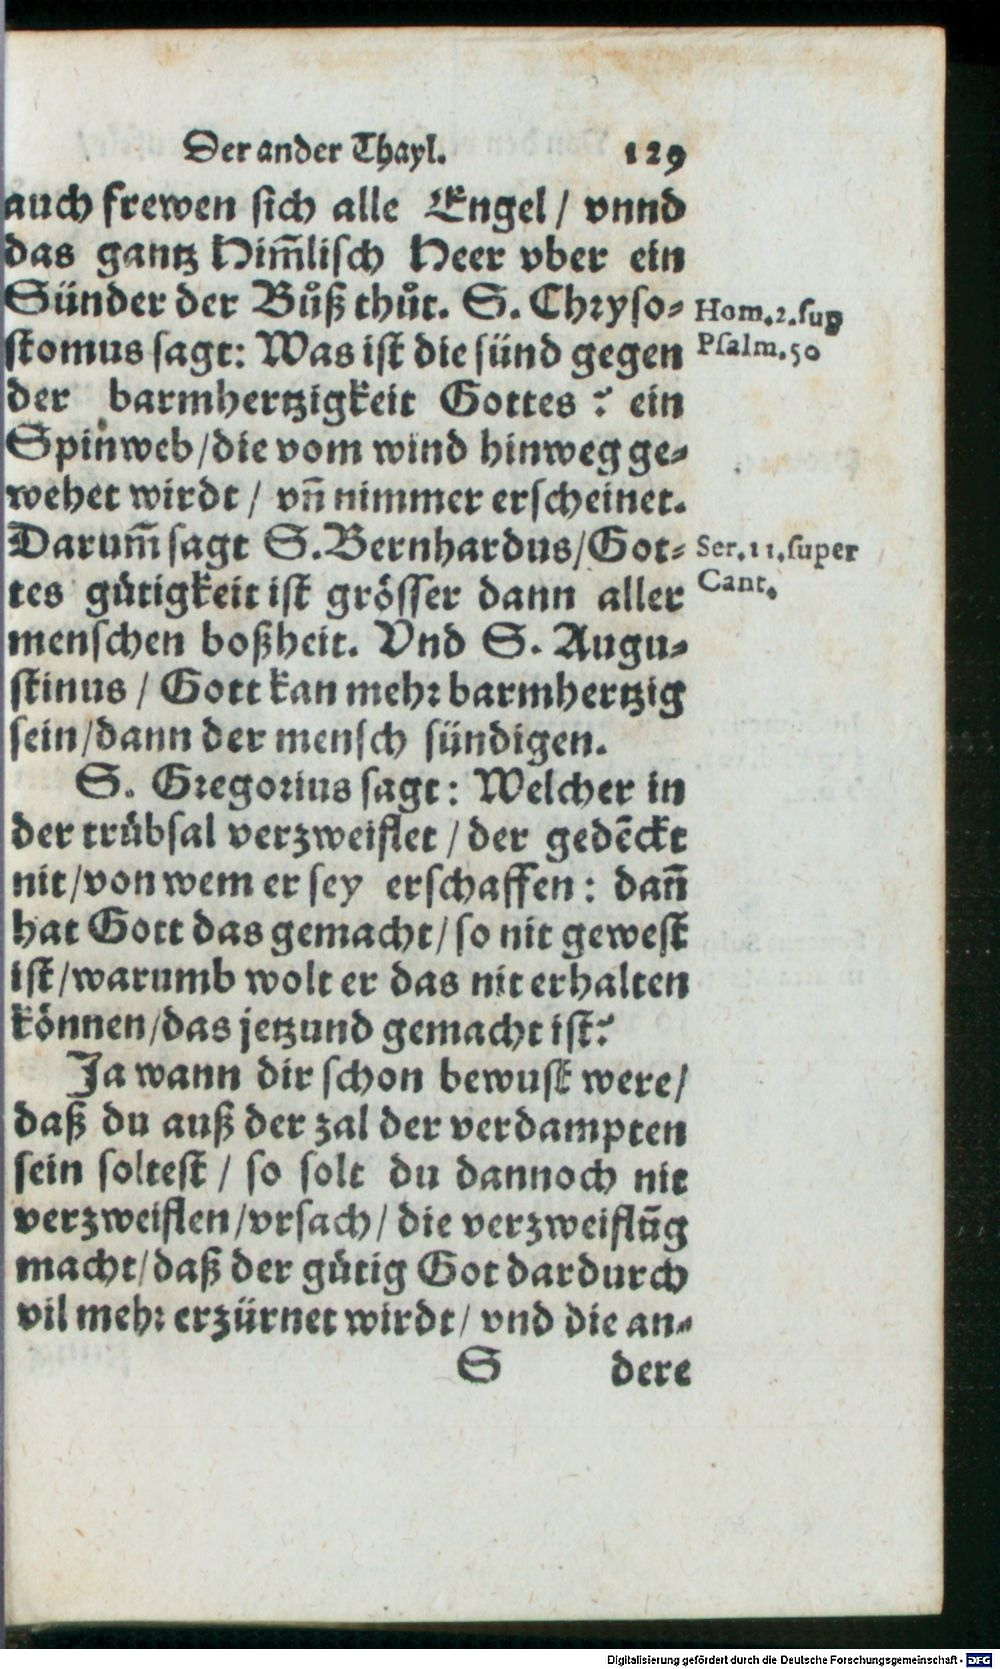 Der ander Thayl. 129
auch frewen sich alle Engel / vnnd
das gantz Him̃lisch Heer vber ein
Sünder der Bůß thůt. S. Chryso-
stomus sagt: Was ist die sünd gegen
der barmhertzigkeit Gottes? ein
Spinweb/die vom wind hinweg ge-
wehet wirdt / vñ nimmer erscheinet.
Darum̃ sagt S.Bernhardus/Got-
tes gütigkeit ist grösser dann aller
menschen boßheit. Vnd S. Augu-
stinus / Gott kan mehr barmhertzig
sein/dann der mensch sündigen.
S. Gregorius sagt: Welcher in
der trübsal verzweiflet / der gedẽckt
nit/von wem er sey erschaffen: dañ
hat Gott das gemacht/so nit gewest
ist/warumb wolt er das nit erhalten
können/das jetzund gemacht ist?
Ja wann dir schon bewust were/
daß du auß der zal der verdampten
sein soltest / so solt du dannoch nit
verzweiflen/vrsach/ die verzweiflũg
macht/daß der gütig Got dardurch
vil mehr erzürnet wirdt/ vnd die an-
S dere
Hom.2.sup
Psalm.50
Ser.11.super
Cant.
Digitalisierung gefördert durch die Deutsche Forschungsgemeinschaft - DFG